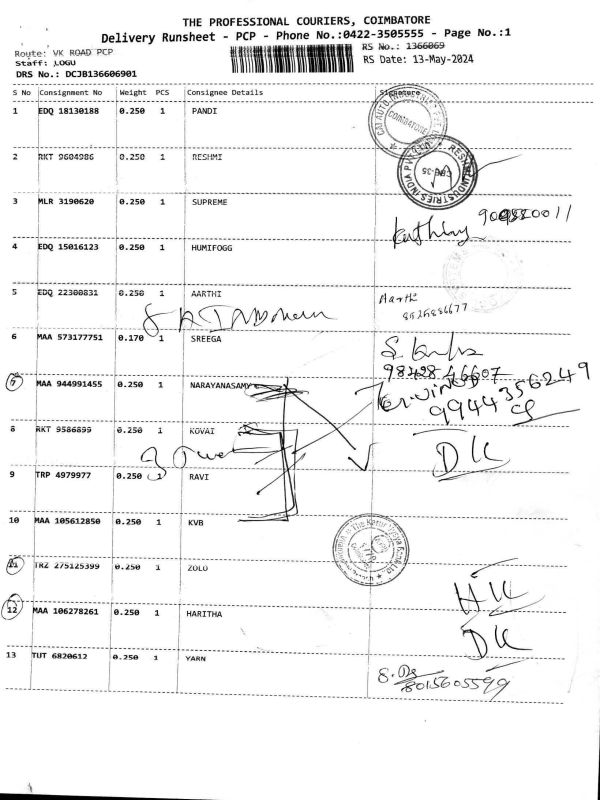 THE PROFESSIONAL COURIERS, COIMBATORE
Delivery Runsheet - PCP - Phone No.:0422-3505555 - Page No.:1
Route: VK ROAD PCP RS No.: 1366069
Staff: LOGU RS Date: 13-May-2024
DRS No.: DCJB136606901
S No Consignment No Weight PCS Consignee Details Signature
1 EDQ 18130188 0.250 1 PANDI
COIMBATORE
2 RKT 9604986 0.250 1 RESHMI
RESHMI INDUSTRIES INDIA PVT LTD
CBE-35
3 MLR 3190620 0.250 1 SUPREME
4 EDQ 15016123 0.250 1 HUMIFOGG
5 EDQ 22300831 0.250 1 AARTHI
Aarthi
6 MAA 573177751 0.170 1 SREEGA
98428 46607
7 MAA 944991455 0.250 1 NARAYANASAMY
9944356249
8 RKT 9586899 0.250 1 KOVAI
DK
9 TRP 4979977 0.250 1 RAVI
10 MAA 105612850 0.250 1 KVB
11 TRZ 275125399 0.250 1 ZOLO
HK
12 MAA 106278261 0.250 1 HARITHA
DK
13 TUT 6820612 0.250 1 YARN
8015605599